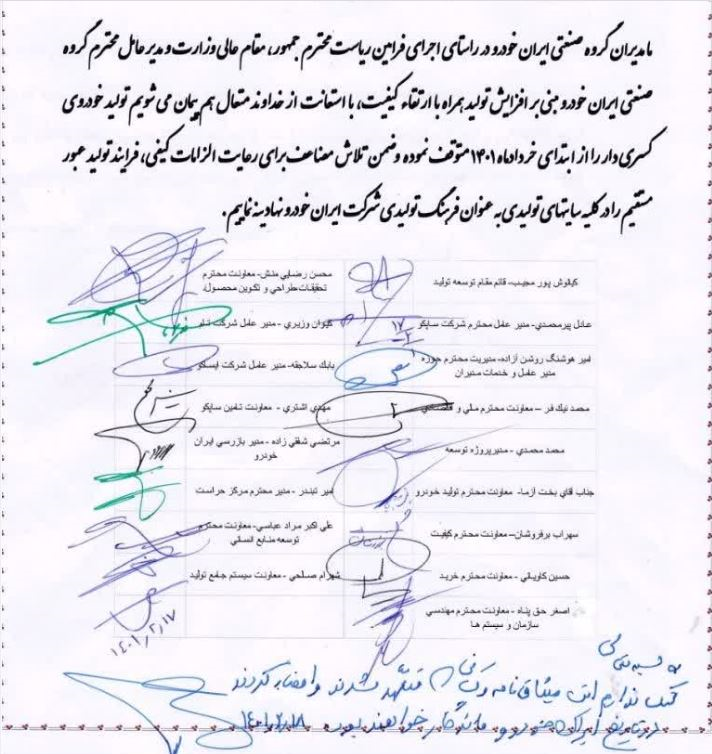 ما مدیران گروه صنعتی ایران خودرو در راستای اجرای فرامین ریاست محترم جمهور، مقام عالی وزارت و مدیر عامل محترم گروه
صنعتی ایران خودرو مبنی بر افزایش تولید همراه با ارتقاء کیفیت، با استعانت از خداوند متعال هم پیمان می شویم تولید خودروی
کسری دار را از ابتدای خردادماه ۱۴۰۱ متوقف نموده و ضمن تلاش مضاعف برای رعایت الزامات کیفی، فرایند تولید عبور
مستقیم را در کلیه سایتهای تولیدی به عنوان فرهنگ تولیدی شرکت ایران خودرو نهادینه نماییم.
کیانوش پور مجیب- قائم مقام توسعه تولید
محسن رضایی منش- معاونت محترم
تحقیقات، طراحی و تکوین محصول
عادل پیرمحمدی- مدیر عامل محترم شرکت ساپکو
کیوان وزیری - مدیر عامل شرکت تام
امیر هوشنگ روشن آزاده- مدیریت محترم حوزه
مدیر عامل و خدمات مدیران
بابک سلاجقه- مدیر عامل شرکت ایسکو
محمد نیک فر – معاونت محترم مالی و
مهدی اشتری - معاونت تامین ساپکو
محمد محمدی - مدیرپروژه توسعه
مرتضی شفقی زاده - مدیر بازرسی ایران
خودرو
جناب آقای بخت آزما- معاونت محترم تولید خودرو
امیر تبندر - مدیر محترم مرکز حراست
سهراب برفروشان– معاونت محترم کیفیت
علی اکبر مراد عباسی- معاونت محترم
توسعه منابع انسانی
حسین کاویانی - معاونت محترم خرید
شهرام صلحی - معاونت سیستم جامع تولید
اصغر حق پناه - معاونت محترم مهندسی
سازمان و سیستم ها
۱۴۰۱,۲,۱۷
این میثاق نامه متعهد شدند و امضاء کردند
در تاریخ ایران خودرو ماندگار خواهند بود. ۱۴۰۱,۲,۱۸